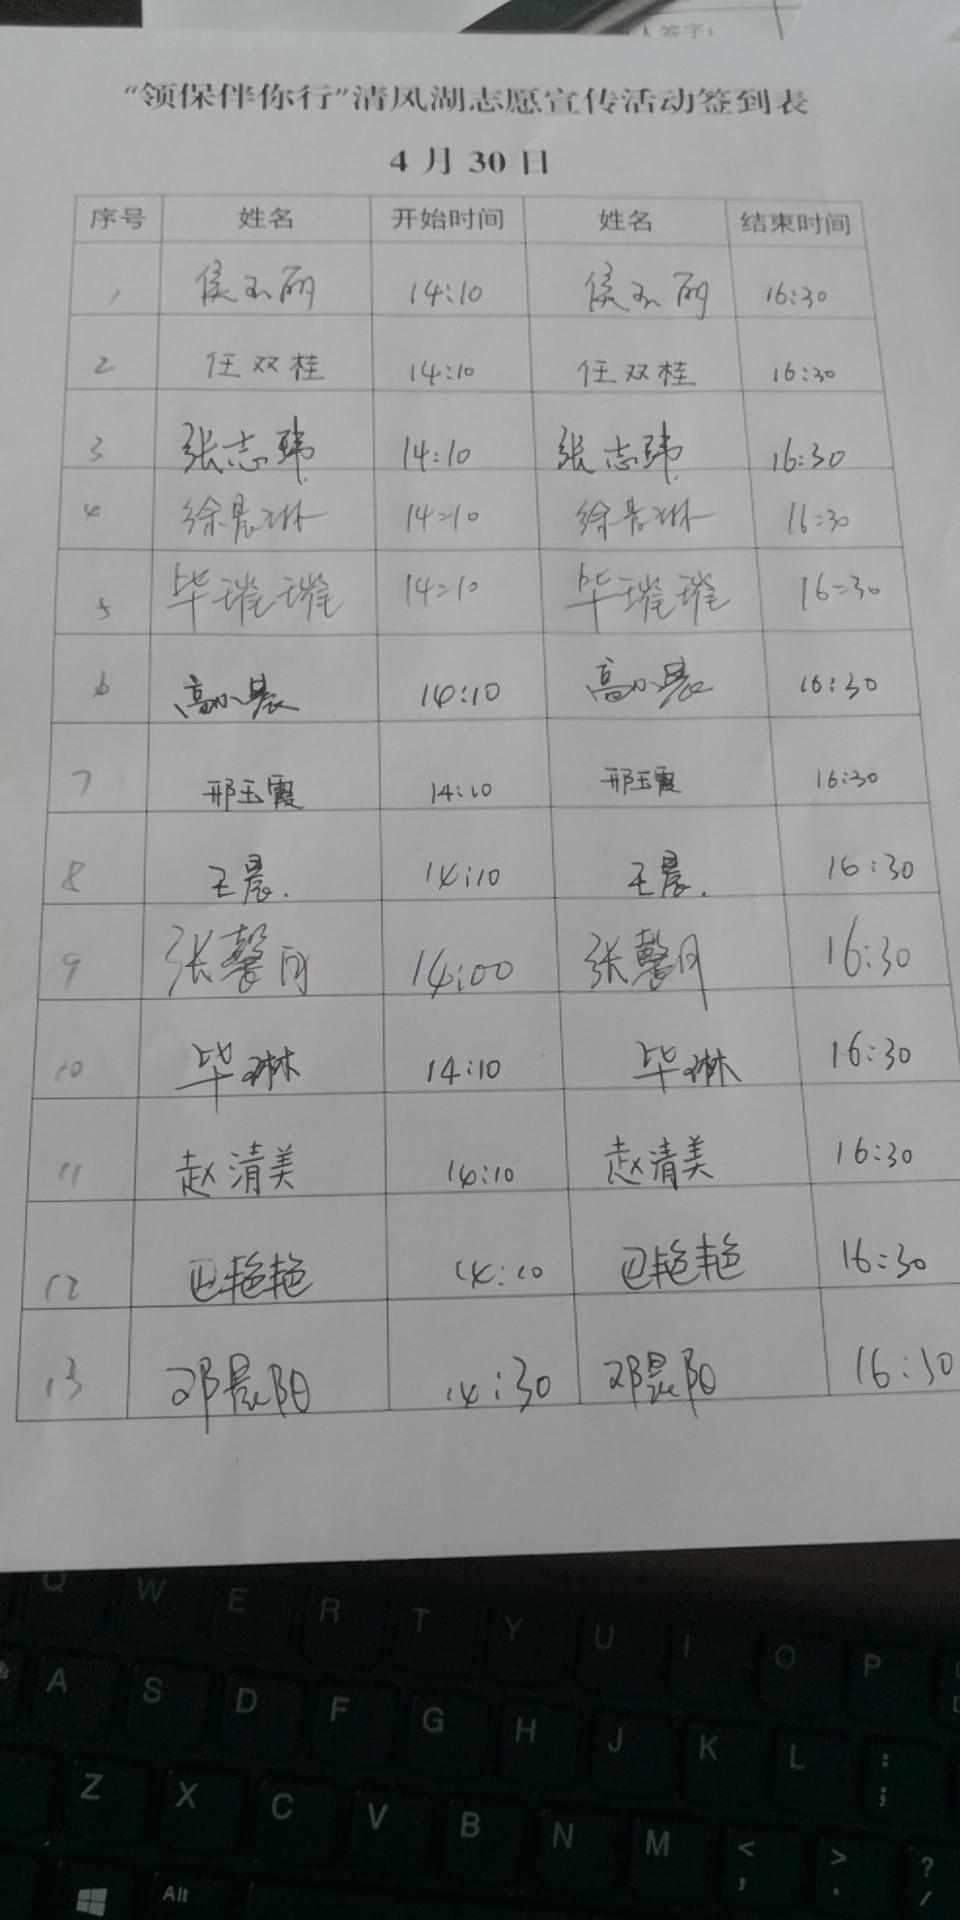 人签字：
“领保伴你行”清风湖志愿宣传活动签到表
4 月 30 日
序号 姓名 开始时间 姓名 结束时间
1 侯玉丽 14:10 侯玉丽 16:30
2 任双桂 14:10 任双桂 16:30
3 张志玮 14:10 张志玮 16:30
4 徐晨琳 14:10 徐晨琳 16:30
5 毕璀璀 14:10 毕璀璀 16:30
6 高小晨 14:10 高小晨 16:30
7 邢玉霞 14:10 邢玉霞 16:30
8 王晨. 14:10 王晨. 16:30
9 张馨月 14:00 张馨月 16:30
10 毕琳 14:10 毕琳 16:30
11 赵清美 14:10 赵清美 16:30
12 巴艳艳 14:10 巴艳艳 16:30
13 邓晨阳 14:30 邓晨阳 16:30
Q W E R T Y U I O P
A S D F G H J K L : ;
Z X C V B N M < , > . ? /
Alt